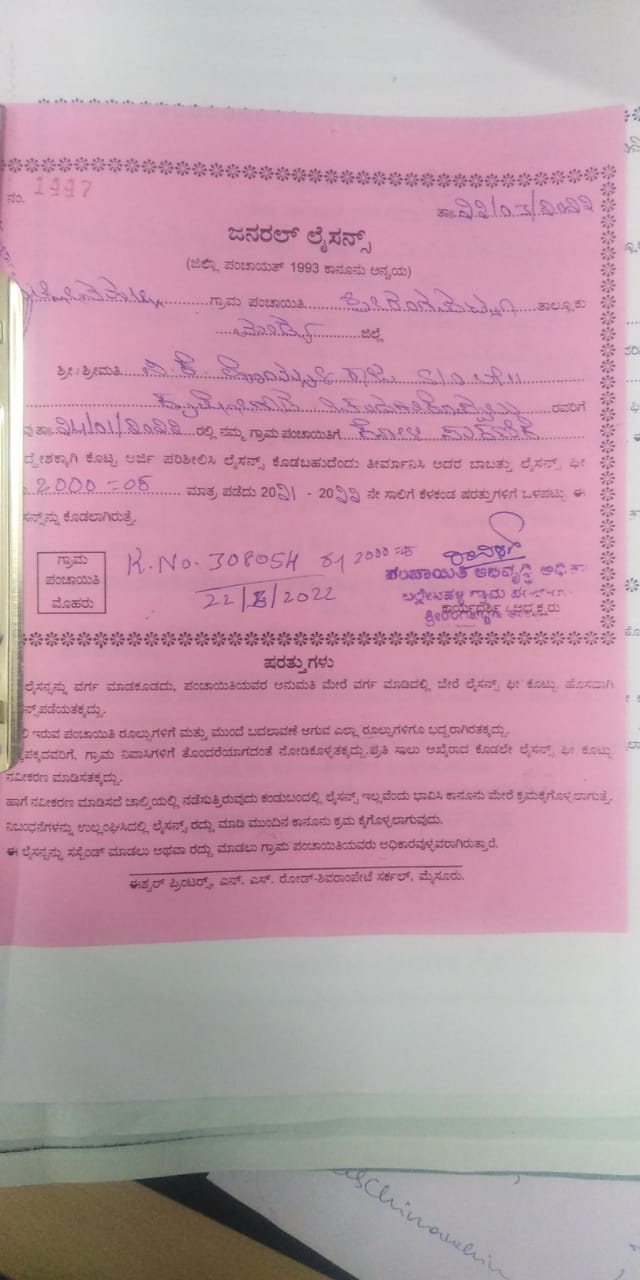 ನಂ. 1997
ತಾ: ೨೨/೦೩/೨೦೨೨
ಜನರಲ್ ಲೈಸನ್ಸ್
(ಜಿಲ್ಲಾ ಪಂಚಾಯತ್ 1993 ಕಾನೂನು ಅನ್ವಯ)
ಗ್ರಾಮ ಪಂಚಾಯಿತಿ ಶ್ರೀರಂಗಪಟ್ಟಣ ತಾಲ್ಲೂಕು
ಮಂಡ್ಯ ಜಿಲ್ಲೆ
ಶ್ರೀ/ಶ್ರೀಮತಿ
ರವರಿಗೆ
ವು ತಾ: ೨೪/೦1/೨೦೨೨ ರಲ್ಲಿ ನಮ್ಮ ಗ್ರಾಮ ಪಂಚಾಯಿತಿಗೆ ಕೋಳಿ
ದ್ದೇಶಕ್ಕಾಗಿ ಕೊಟ್ಟ ಅರ್ಜಿ ಪರಿಶೀಲಿಸಿ ಲೈಸನ್ಸ್ ಕೊಡಬಹುದೆಂದು ತೀರ್ಮಾನಿಸಿ ಅದರ ಬಾಬತ್ತು ಲೈಸನ್ಸ್ ಫೀ
2000=00 ಮಾತ್ರ ಪಡೆದು 20೨1 - 20೨೨ ನೇ ಸಾಲಿಗೆ ಕೆಳಕಂಡ ಷರತ್ತುಗಳಿಗೆ ಒಳಪಟ್ಟು ಈ
ಸನ್ಸ್‌ನ್ನು ಕೊಡಲಾಗಿರುತ್ತೆ.
ಗ್ರಾಮ
ಪಂಚಾಯಿತಿ
ಮೊಹರು
R.No. 308054 2000=00
22/3/2022
ಪಂಚಾಯಿತಿ ಅಭಿವೃದ್ಧಿ ಅಧಿಕಾ
ಗ್ರಾಮ
ಕಾರ್ಯದರ್ಶಿ / ಅಧ್ಯಕ್ಷರು
ಷರತ್ತುಗಳು
ಲೈಸನ್ಸನ್ನು ವರ್ಗ ಮಾಡಕೂಡದು, ಪಂಚಾಯಿತಿಯವರ ಅನುಮತಿ ಮೇರೆ ವರ್ಗ ಮಾಡಿದಲ್ಲಿ ಬೇರೆ ಲೈಸನ್ಸ್ ಫೀ ಕೊಟ್ಟು ಹೊಸದಾಗಿ
ನ್ಸ್‌ಪಡೆಯತಕ್ಕದ್ದು.
ಲಿ ಇರುವ ಪಂಚಾಯಿತಿ ರೂಲ್ಸುಗಳಿಗೆ ಮತ್ತು ಮುಂದೆ ಬದಲಾವಣೆ ಆಗುವ ಎಲ್ಲಾ ರೂಲ್ಸುಗಳಿಗೂ ಬದ್ಧರಾಗಿರತಕ್ಕದ್ದು.
ಪಕ್ಕದವರಿಗೆ, ಗ್ರಾಮ ನಿವಾಸಿಗಳಿಗೆ ತೊಂದರೆಯಾಗದಂತೆ ನೋಡಿಕೊಳ್ಳತಕ್ಕದ್ದು.ಪ್ರತಿ ಸಾಲು ಅಖೈರಾದ ಕೂಡಲೇ ಲೈಸನ್ಸ್ ಫೀ ಕೊಟ್ಟು
ನವೀಕರಣ ಮಾಡಿಸತಕ್ಕದ್ದು.
ಹಾಗೆ ನವೀಕರಣ ಮಾಡಿಸದೆ ಚಾಲ್ತಿಯಲ್ಲಿ ನಡೆಸುತ್ತಿರುವುದು ಕಂಡುಬಂದಲ್ಲಿ ಲೈಸನ್ಸ್ ಇಲ್ಲವೆಂದು ಭಾವಿಸಿ ಕಾನೂನು ಮೇರೆ ಕ್ರಮಕೈಗೊಳ್ಳಲಾಗುತ್ತೆ.
ನಿಬಂಧನೆಗಳನ್ನು ಉಲ್ಲಂಘಿಸಿದಲ್ಲಿ ಲೈಸನ್ಸ್ ರದ್ದು ಮಾಡಿ ಮುಂದಿನ ಕಾನೂನು ಕ್ರಮ ಕೈಗೊಳ್ಳಲಾಗುವುದು.
ಈ ಲೈಸನ್ಸನ್ನು ಸಸ್ಪೆಂಡ್ ಮಾಡಲು ಅಥವಾ ರದ್ದು ಮಾಡಲು ಗ್ರಾಮ ಪಂಚಾಯಿತಿಯವರು ಅಧಿಕಾರವುಳ್ಳವರಾಗಿರುತ್ತಾರೆ.
ಈಶ್ವರ್ ಪ್ರಿಂಟರ್ಸ್, ಎನ್. ಎಸ್. ರೋಡ್-ಶಿವರಾಂಪೇಟೆ ಸರ್ಕಲ್, ಮೈಸೂರು.